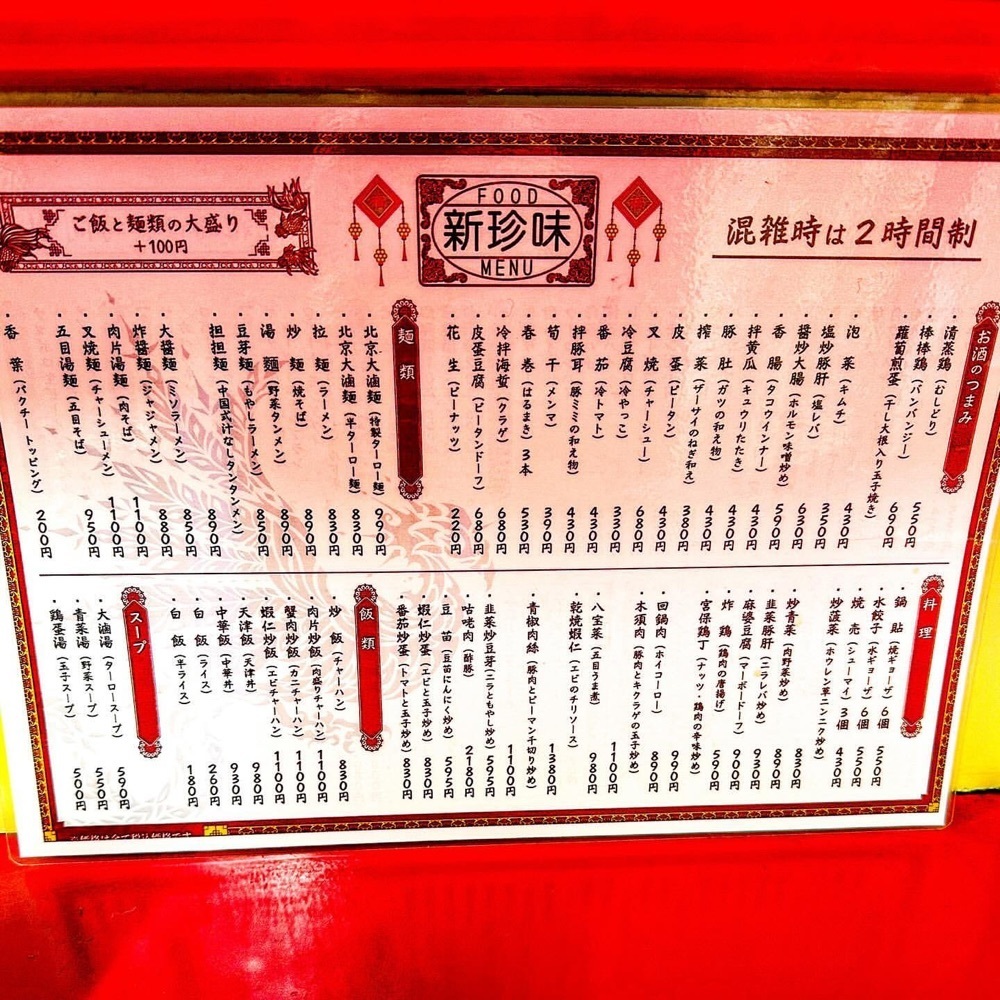 FOOD
新珍味
MENU
混雑時は2時間制
ご飯と麺類の大盛り
+100円
お酒のつまみ
・清蒸鶏(むしどり)
・棒棒鶏(バンバンジー) 550円
・蘿蔔煎蛋(干し大根入り玉子焼き) 690円
・泡菜(キムチ) 430円
・塩炒豚肝(塩レバ) 350円
・醤炒大腸(ホルモン味噌炒め) 630円
・香腸(タコウインナー) 590円
・拌黄瓜(キュウリたたき) 430円
・豚肚(ガツの和え物) 430円
・搾菜(ザーサイのねぎ和え) 430円
・皮蛋(ピータン) 380円
・叉焼(チャーシュー) 430円
・冷豆腐(冷やっこ) 330円
・番茄(冷トマト) 330円
・拌豚耳(豚ミミの和え物) 430円
・筍干(メンマ) 390円
・春巻(はるまき)3本 530円
・冷拌海蜇(クラゲ) 680円
・皮蛋豆腐(ピータンドーフ) 680円
・花生(ピーナッツ) 220円
麺類
・北京大滷麺(特製ターロー麺) 990円
・北京大滷麺(半ターロー麺) 830円
・拉麺(ラーメン) 830円
・炒麺(焼そば) 890円
・湯麺(野菜タンメン) 890円
・豆芽麺(もやしラーメン) 850円
・担担麺(中国式汁なしタンタンメン) 890円
・大醤麺(ミソラーメン) 850円
・炸醤麺(ジャジャメン) 880円
・肉片湯麺(肉そば) 1100円
・叉焼麺(チャーシューメン) 1100円
・五目湯麺(五目そば) 950円
・香葉(パクチートッピング) 200円
料理
・鍋貼(焼ギョーザ)6個
・水餃子(水ギョーザ)6個 550円
・焼売(シューマイ)3個 550円
・炒菠菜(ホウレン草ニンニク炒め) 430円
・炒青菜(肉野菜炒め) 830円
・韮菜豚肝(ニラレバ炒め) 890円
・麻婆豆腐(マーボードーフ) 930円
・炸鶏(鶏肉の唐揚げ) 900円
・宮保鶏丁(ナッツ・鶏肉の辛味炒め) 590円
・回鍋肉(ホイコーロー) 990円
・木須肉(豚肉とキクラゲの玉子炒め) 890円
・八宝菜(五目うま煮) 1100円
・乾焼蝦仁(エビのチリソース) 980円
・青椒肉絲(豚肉とピーマン千切り炒め) 1380円
・韮菜炒豆芽(ニラともやし炒め) 1100円
・咕咾肉(酢豚) 595円
・豆苗(豆苗にんにく炒め) 2180円
・蝦仁炒蛋(エビと玉子炒め) 595円
・番茄炒蛋(トマトと玉子炒め) 830円
830円
飯類
・炒飯(チャーハン) 830円
・肉片炒飯(肉盛りチャーハン) 1100円
・蟹肉炒飯(カニチャーハン) 1100円
・蝦仁炒飯(エビチャーハン) 1100円
・天津飯(天津丼) 980円
・中華飯(中華丼) 930円
・白飯(ライス) 260円
・白飯(半ライス) 180円
スープ
・大滷湯(タールースープ) 590円
・青菜湯(野菜スープ) 520円
・鶏蛋湯(玉子スープ) 500円